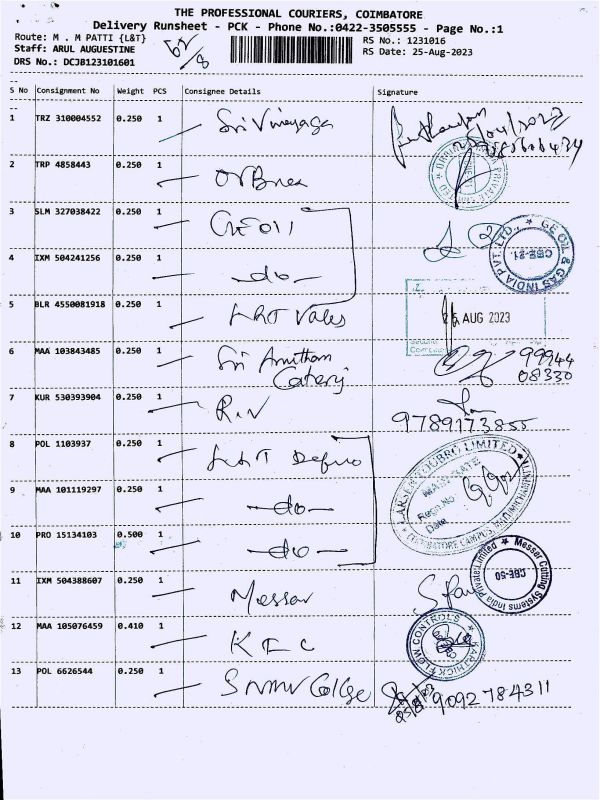 THE PROFESSIONAL COURIERS, COIMBATORE
Delivery Runsheet - PCK - Phone No.:0422-3505555 - Page No.:1
Route: M . M PATTI {L&T}
RS No.: 1231016
Staff: ARUL AUGUSTINE
RS Date: 25-Aug-2023
DRS No.: DCJB123101601
S No Consignment No Weight PCS Consignee Details Signature
1 TRZ 310004552 0.250 1 Sri Vinayaga
2 TRP 4858443 0.250 1
3 SLM 327038422 0.250 1 GE Oil
4 IXM 504241256 0.250 1 -do-
GE OIL & GAS INDIA PVT. LTD.
CBE-21.
5 BLR 4550081918 0.250 1 L&T Valves
25 AUG 2023
6 MAA 103843485 0.250 1 Sri
99944
08330
7 KUR 530393904 0.250 1 R.V
9789173855
8 POL 1103937 0.250 1 L&T
LARSEN & TOUBRO LIMITED
MAIN GATE
Regn.No
Date
COIMBATORE CAMPUS,
9 MAA 101119297 0.250 1 -do-
10 PRO 15134103 0.500 1 -do-
11 IXM 504388607 0.250 1 Messer
Messer Cutting Systems India Private Limited
CBE-50
12 MAA 105076459 0.410 1
FLOW CONTROLS
13 POL 6626544 0.250 1 College
9092784311